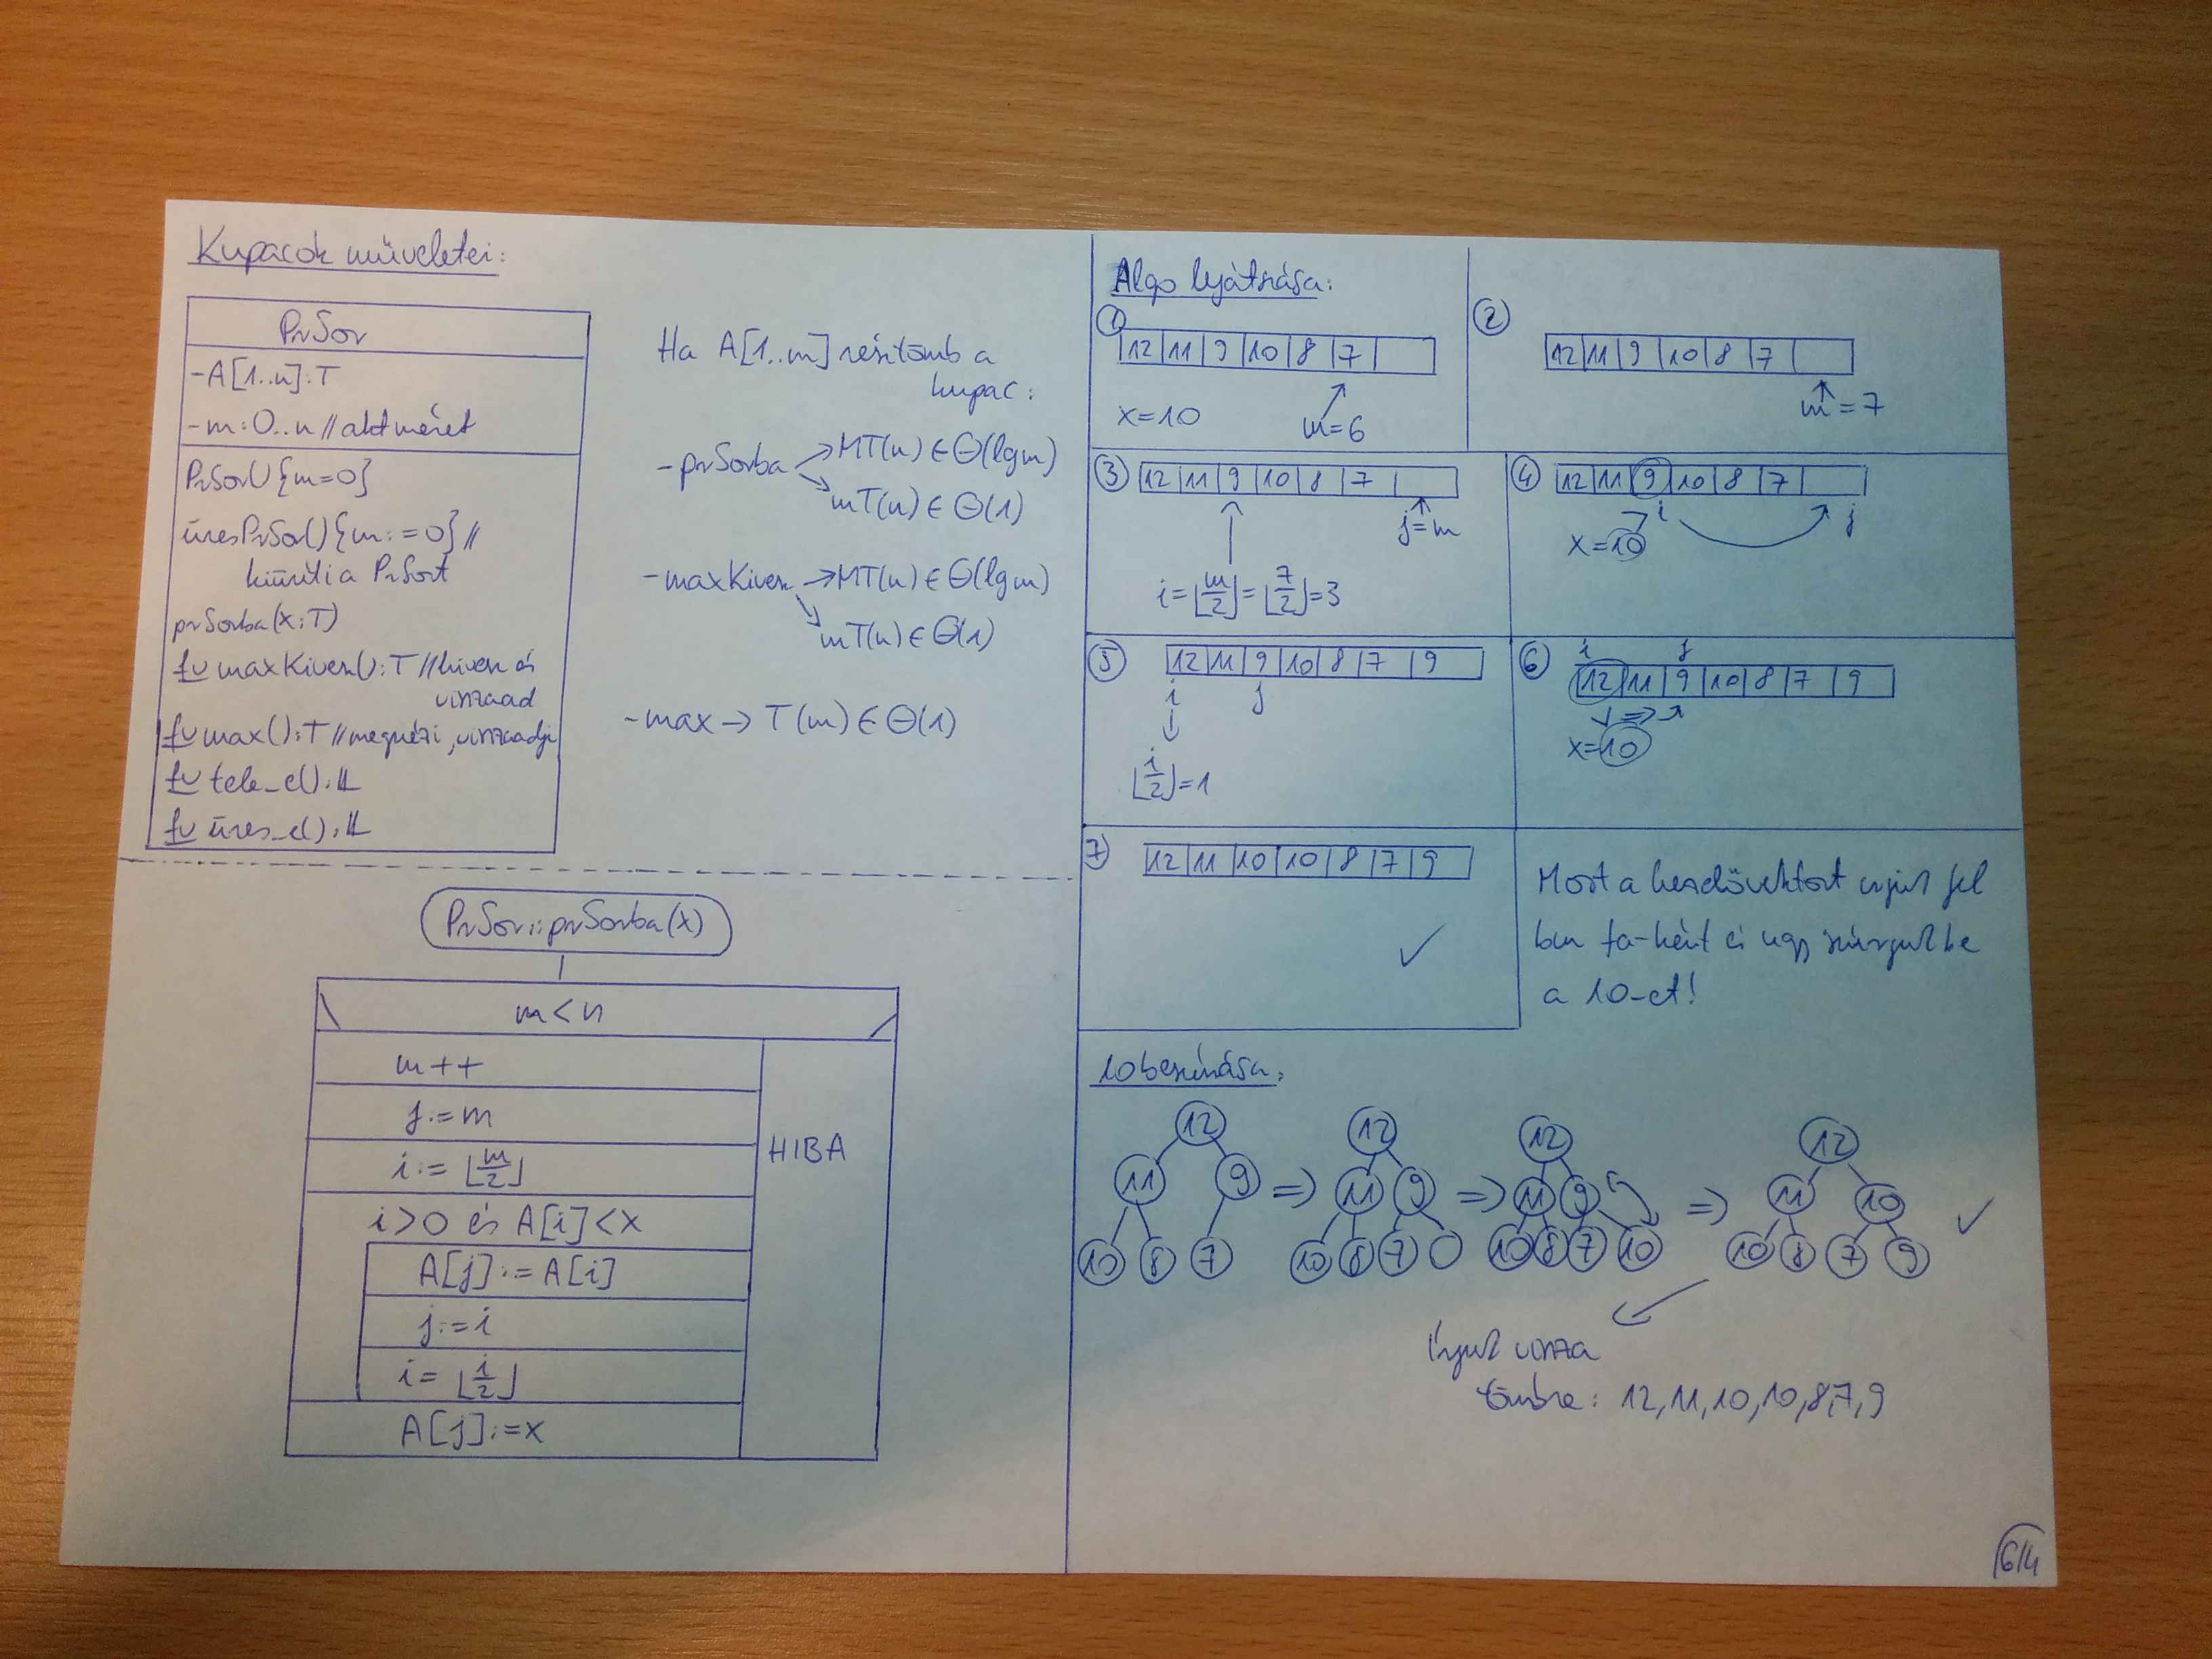 Kupacok műveletei:
PrSor
-A[1..n]:T
-m:0..n//akt méret
PrSor(){m=0}
üresPrSor(){m:=0}//
kiüríti a PrSort
prSorba(x:T)
fv maxKivesz():T//kivesz és
visszaad
fv max():T//megnézi, visszaadja
fv tele_e():𝕃
fv üres_e():𝕃
Ha A[1..m] résztömb a
kupac:
-prSorba →MT(n)∈Θ(lg m)
↘mT(n)∈Θ(1)
-maxKivesz →MT(n)∈Θ(lg m)
↘mT(n)∈Θ(1)
-max → T(m)∈Θ(1)
PrSor::prSorba(x)
m<n
m++
j:=m
i:=⌊m/2⌋
i>0 és A[i]<x
A[j]:=A[i]
j:=i
i=⌊i/2⌋
A[j]:=x
HIBA
Algo lejátszása:
①
12|11|9|10|8|7|
x=10
m=6
②
12|11|9|10|8|7|
m=7
③ 12|11|9|10|8|7|
j=m
i=⌊m/2⌋=⌊7/2⌋=3
④ 12|11|9|10|8|7|
i j
x=10
⑤ 12|11|9|10|8|7|9
i j
⌊i/2⌋=1
⑥ i j
12|11|9|10|8|7|9
x=10
7) 12|11|10|10|8|7|9
✓
Most a kezdővektort írjuk fel
bin fa-ként és úgy szúrjuk be
a 10-et!
10 beszúrása:
12 ⇒ 12 ⇒ 12 ⇒ 12
11 9 11 9 11 9 11 10 ✓
10 8 7 10 8 7 10 8 7 10 10 8 7 9
Írjuk vissza
tömbre: 12,11,10,10,8,7,9
6/4